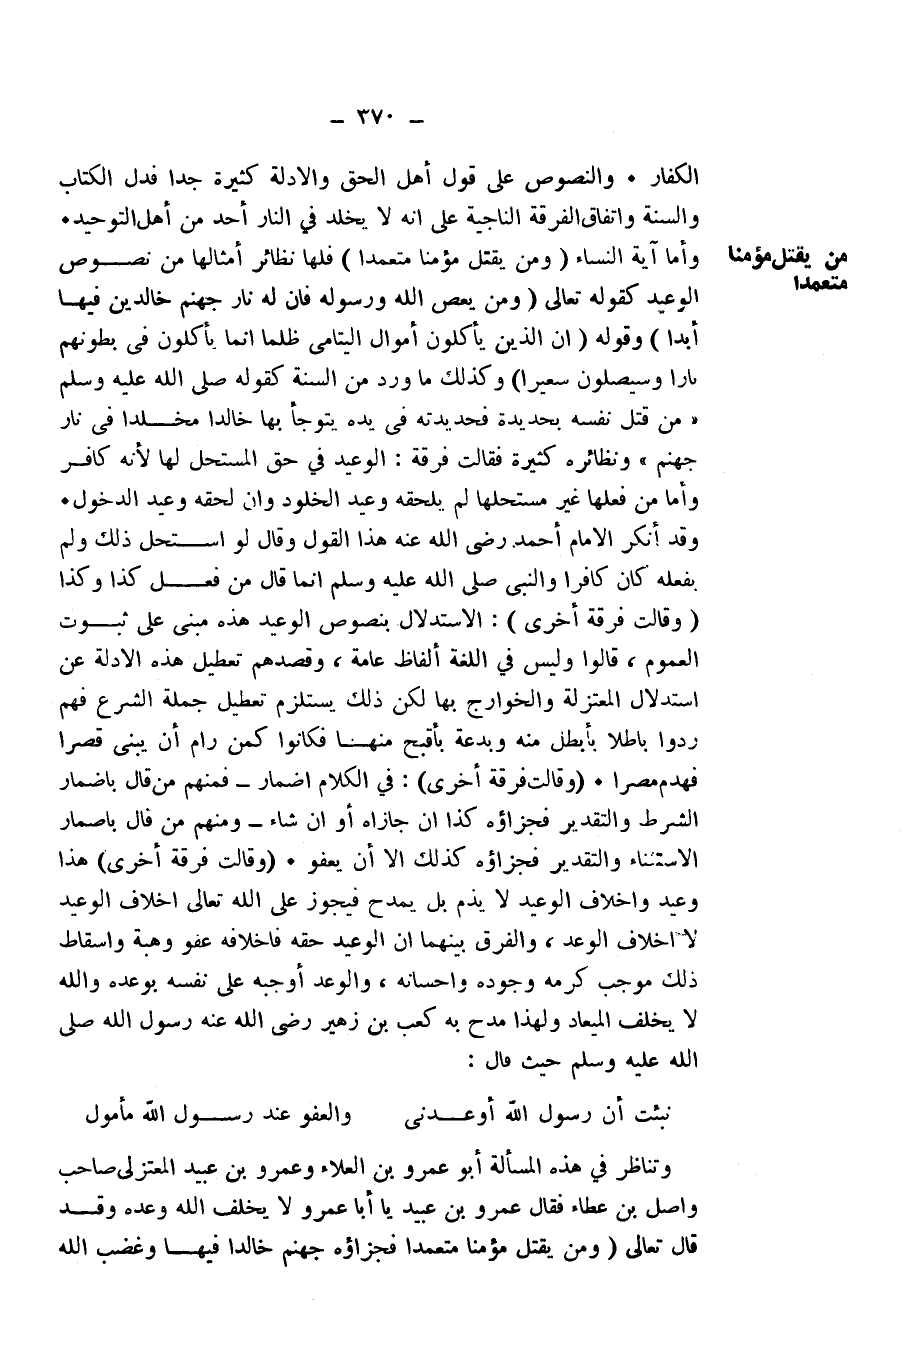 – ٣٧٠ –
الكفار • والنصوص على قول أهل الحق والادلة كثيرة جدا فدل الكتاب
والسنة واتفاق الفرقة الناجية على انه لا يخلد في النار أحد من أهل التوحيد •
من يقتل مؤمنا
متعمدا
وأما آية النساء ( ومن يقتل مؤمنا متعمدا ) فلها نظائر أمثالها من نصوص
الوعيد كقوله تعالى ( ومن يعص الله ورسوله فان له نار جهنم خالدين فيها
أبدا ) وقوله ( ان الذين يأكلون أموال اليتامى ظلما انما يأكلون فى بطونهم
نارا وسيصلون سعيرا) وكذلك ما ورد من السنة كقوله صلى الله عليه وسلم
« من قتل نفسه بحديدة فحديدته فى يده يتوجأ بها خالدا مخلدا فى نار
جهنم » ونظائره كثيرة فقالت فرقة : الوعيد في حق المستحل لها لأنه كافر
وأما من فعلها غير مستحلها لم يلحقه وعيد الخلود وان لحقه وعيد الدخول •
وقد أنكر الامام أحمد رضى الله عنه هذا القول وقال لو استحل ذلك ولم
يفعله كان كافرا والنبى صلى الله عليه وسلم انما قال من فعل كذا وكذا
( وقالت فرقة أخرى ) : الاستدلال بنصوص الوعيد هذه مبنى على ثبوت
العموم ، قالوا وليس في اللغة ألفاظ عامة ، وقصدهم تعطيل هذه الادلة عن
استدلال المعتزلة والخوارج بها لكن ذلك يستلزم تعطيل جملة الشرع فهم
ردوا باطلا بأبطل منه وبدعة بأقبح منها فكانوا كمن رام أن يبنى قصرا
فهدم مصرا • (وقالت فرقة أخرى) : في الكلام اضمار – فمنهم من قال باضمار
الشرط والتقدير فجزاؤه كذا ان جازاه أو ان شاء – ومنهم من قال باضمار
الاستثناء والتقدير فجزاؤه كذلك الا أن يعفو • (وقالت فرقة أخرى) هذا
وعيد واخلاف الوعيد لا يذم بل يمدح فيجوز على الله تعالى اخلاف الوعيد
لا اخلاف الوعد ، والفرق بينهما ان الوعيد حقه فاخلافه عفو وهبة واسقاط
ذلك موجب كرمه وجوده واحسانه ، والوعد أوجبه على نفسه بوعده والله
لا يخلف الميعاد ولهذا مدح به كعب بن زهير رضى الله عنه رسول الله صلى
الله عليه وسلم حيث قال :
نبئت أن رسول الله أوعدنى والعفو عند رسول الله مأمول
وتناظر في هذه المسألة أبو عمرو بن العلاء وعمرو بن عبيد المعتزلى صاحب
واصل بن عطاء فقال عمرو بن عبيد يا أبا عمرو لا يخلف الله وعده وقد
قال تعالى ( ومن يقتل مؤمنا متعمدا فجزاؤه جهنم خالدا فيها وغضب الله